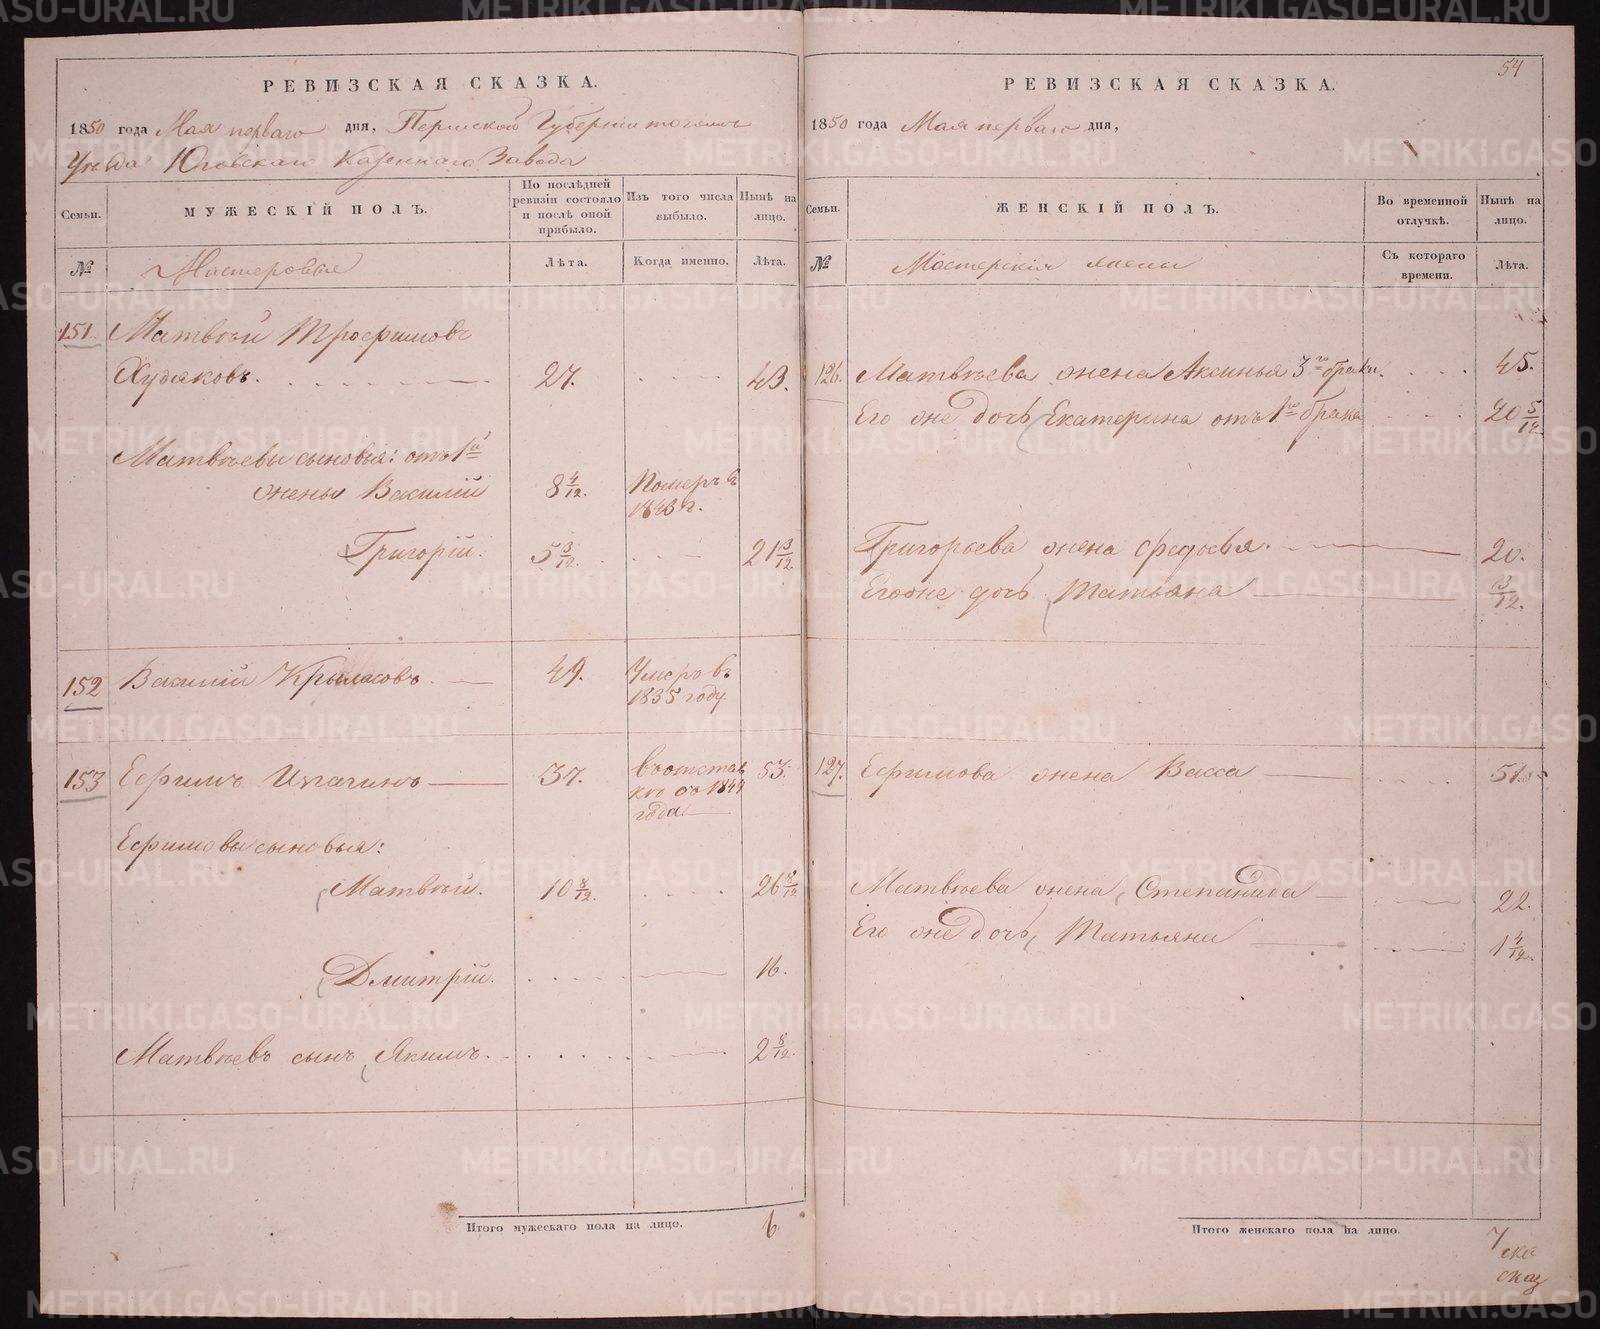 54
РЕВИЗСКАЯ СКАЗКА.
1850 года Мая перваго дня, Пермской Губернiи тогожъ
Уѣзда Юговскаго Казеннаго Завода
Семьи.
МУЖЕСКIЙ ПОЛЪ.
По послѣдней ревизiи состояло и послѣ оной прибыло.
Изъ того числа выбыло.
Нынѣ на лицо.
№
Мастеровыя
Лѣта.
Когда именно.
Лѣта.
151.
Матвѣй Трофимовъ
Худяковъ. 27. 43.
Матвѣевы сыновья: отъ 1й
жены Василiй 8 4/12. Померъ въ
1843 г.
Григорiй. 5 3/12. 21 3/12
152 Василiй Крыласовъ. 49. Умеръ въ
1835 году
153 Ефимъ 37. въ отстав
кѣ съ 1844 53.
года
Ефимовы сыновья:
Матвѣй. 10 8/12. 26 8/12
Дмитрiй. 16.
Матвѣевъ сынъ Якимъ. 2 8/12.
Итого мужескаго пола на лицо. 6
РЕВИЗСКАЯ СКАЗКА.
1850 года Мая перваго дня,
Семьи.
ЖЕНСКIЙ ПОЛЪ.
Во временной отлучкѣ.
Нынѣ на лицо.
№
Мастерскiя жены
Съ котораго времени.
Лѣта.
126. Матвѣева жена Аксинья 3го брака. 45.
Его же дочь Екатерина отъ 1го брака 20 5/12
Григорьева жена Федосья. 20.
Его же дочь Татьяна 3/12.
127. Ефимова жена Васса 51
Матвѣева жена Степанида 22.
Его же дочь Татьяна 1 4/12.
Итого женскаго пола на лицо. 7
METRIKI.GASO-URAL.RU